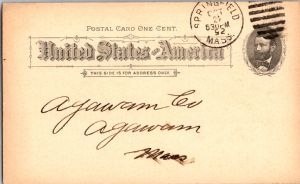 POSTAL CARD ONE CENT.
United States of America
THIS SIDE IS FOR ADDRESS ONLY.
SPRINGFIELD
OCT
630PM
92
MASS.
Agawam Co
Agawam
Mass